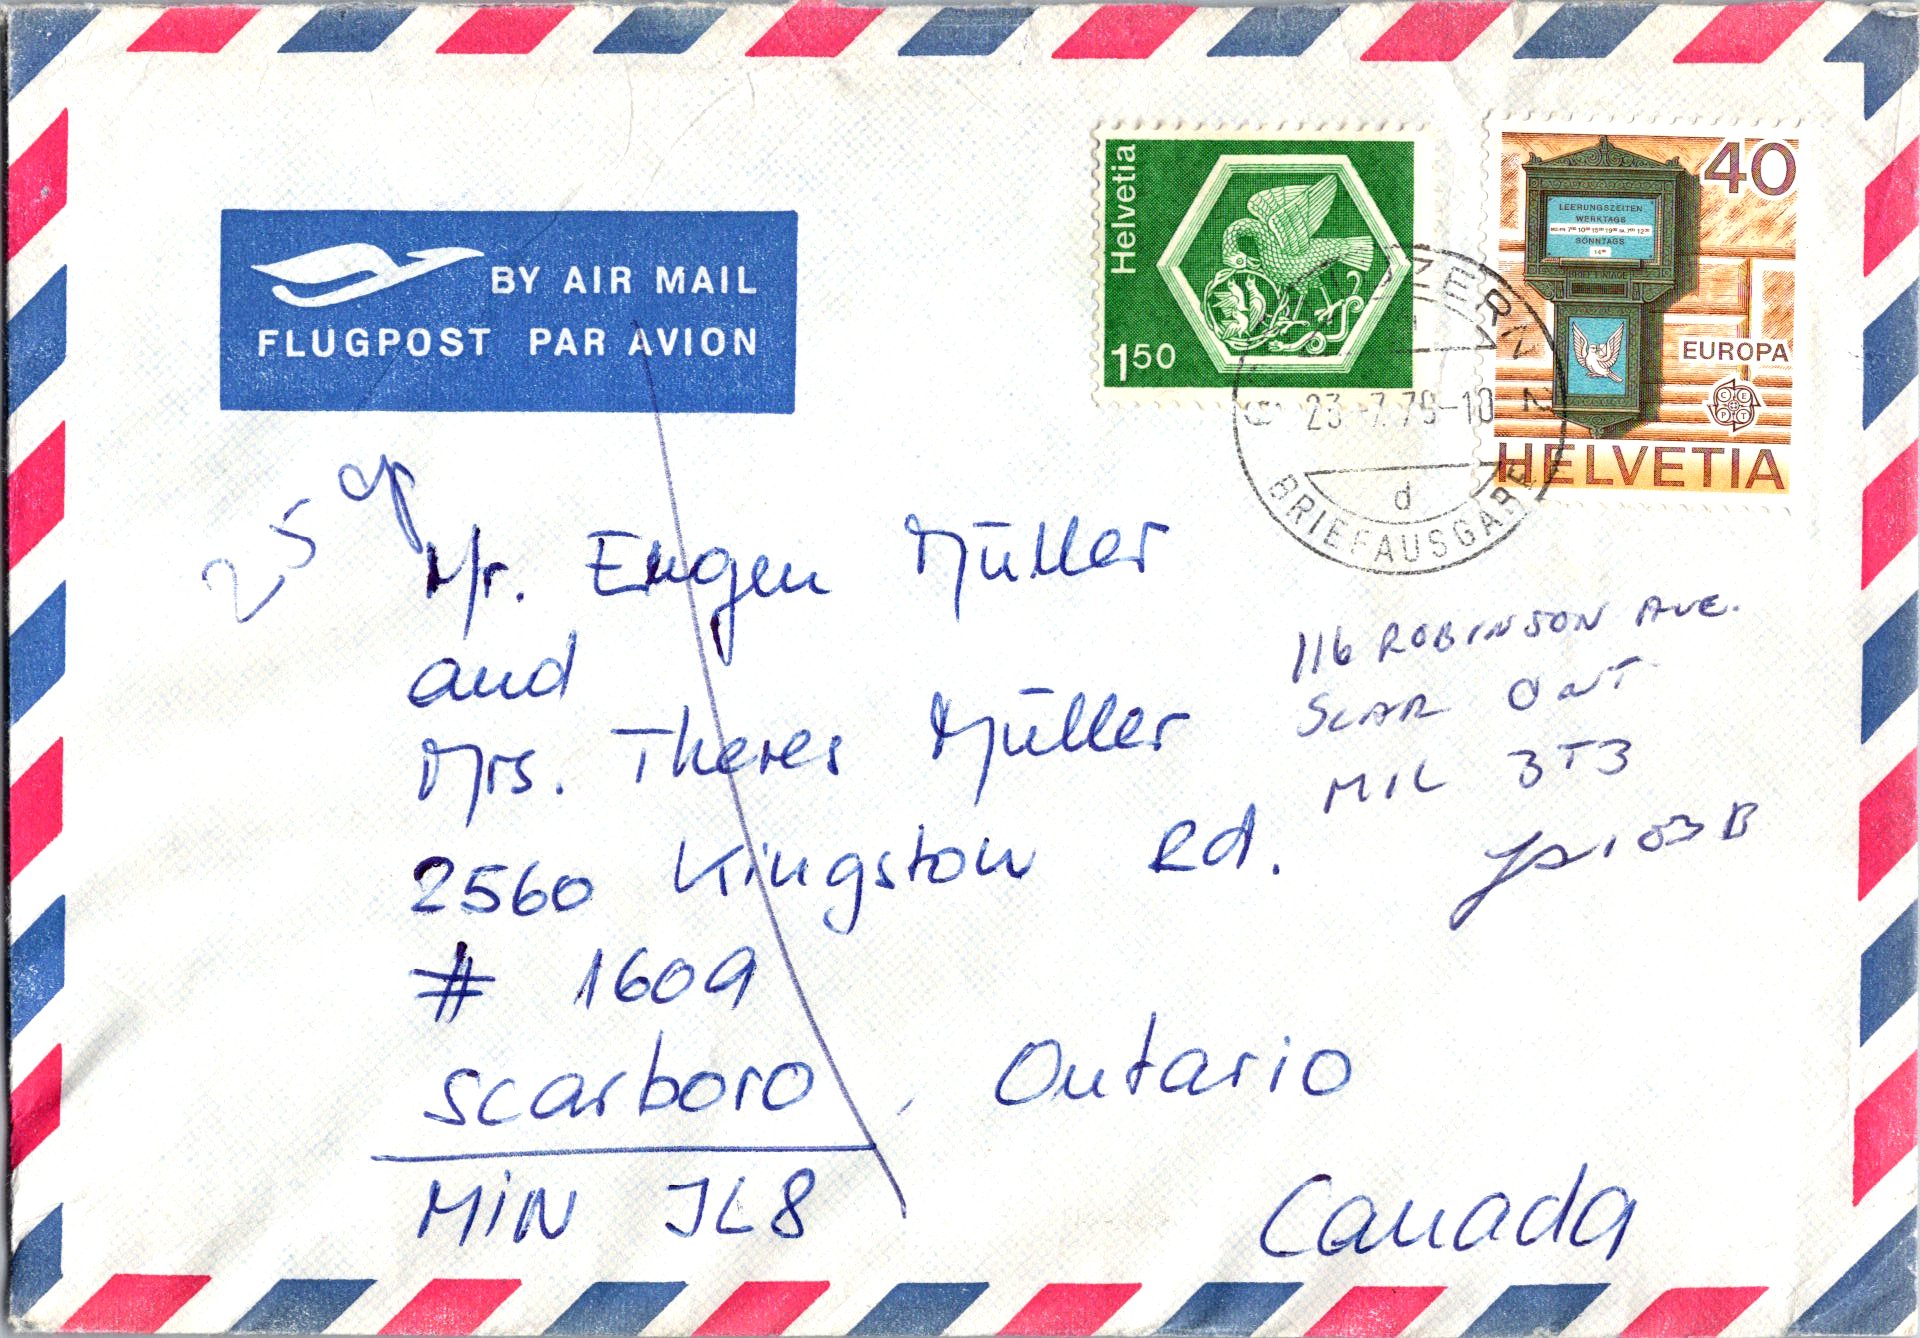 BY AIR MAIL
FLUGPOST PAR AVION
Helvetia
150
40
LEERUNGSZEITEN
WERKTAGS
SONNTAGS
EUROPA
CEPT
HELVETIA
LUZERN 2
23.-7.79-10
d
BRIEFAUSGABE
25
Mr. Eugen Müller
and
Mrs. Theres Müller
2560 Kingston Rd.
# 1609
Scarboro, Ontario
MIN JL8
Canada
116 ROBINSON AVE.
SCAR ONT
MIL 3T3